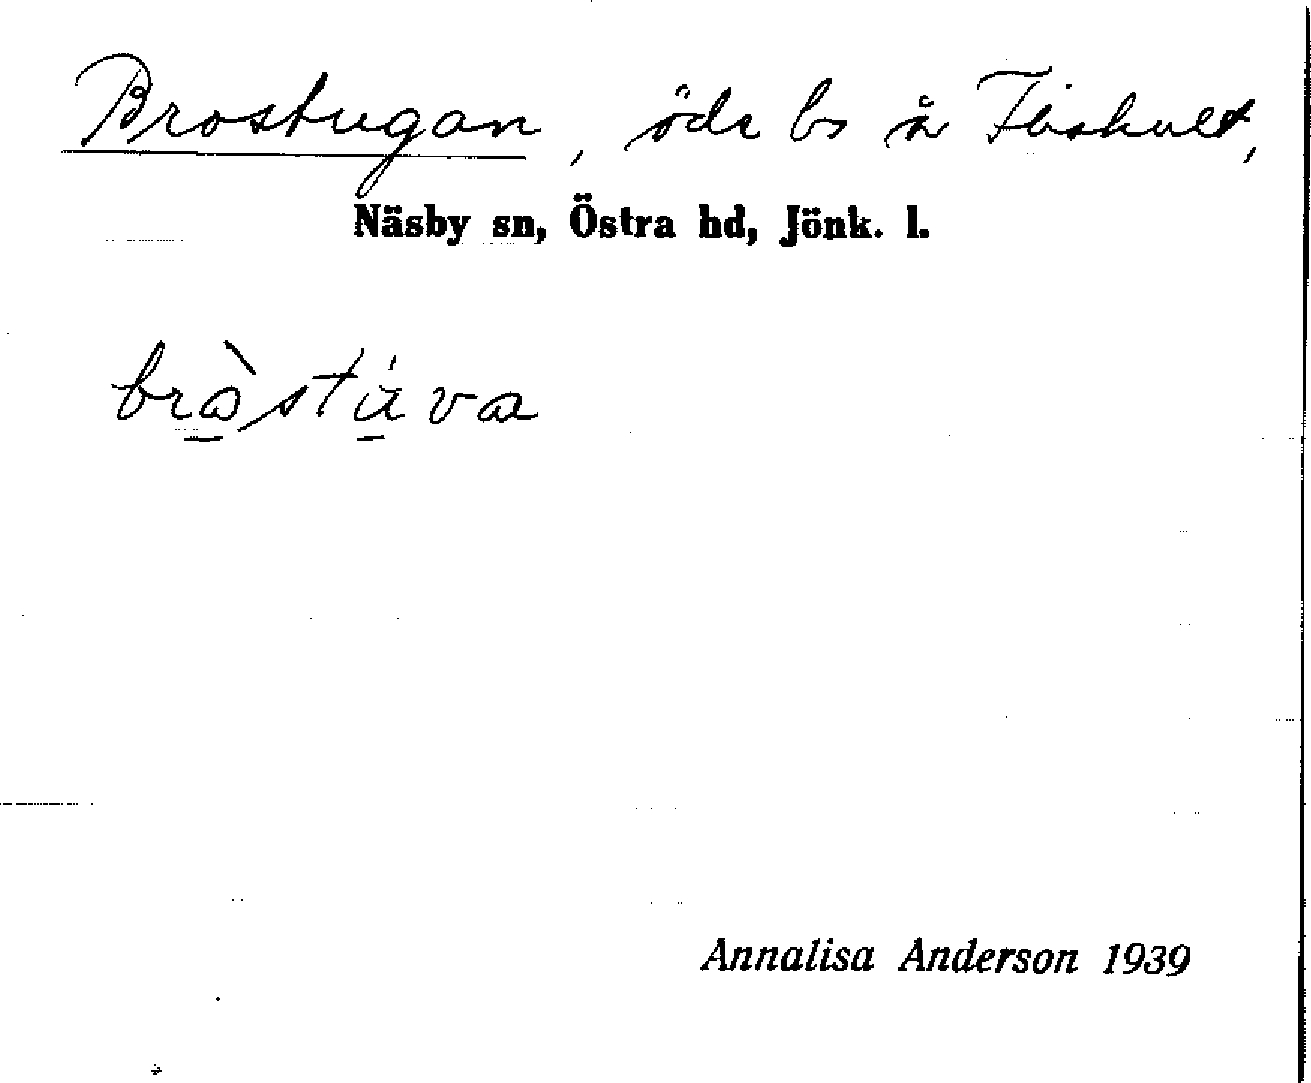 Brostugan, öde bs å Fåskult,
Näsby sn, Östra hd, Jönk. l.
bråstuva
Annalisa Anderson 1939